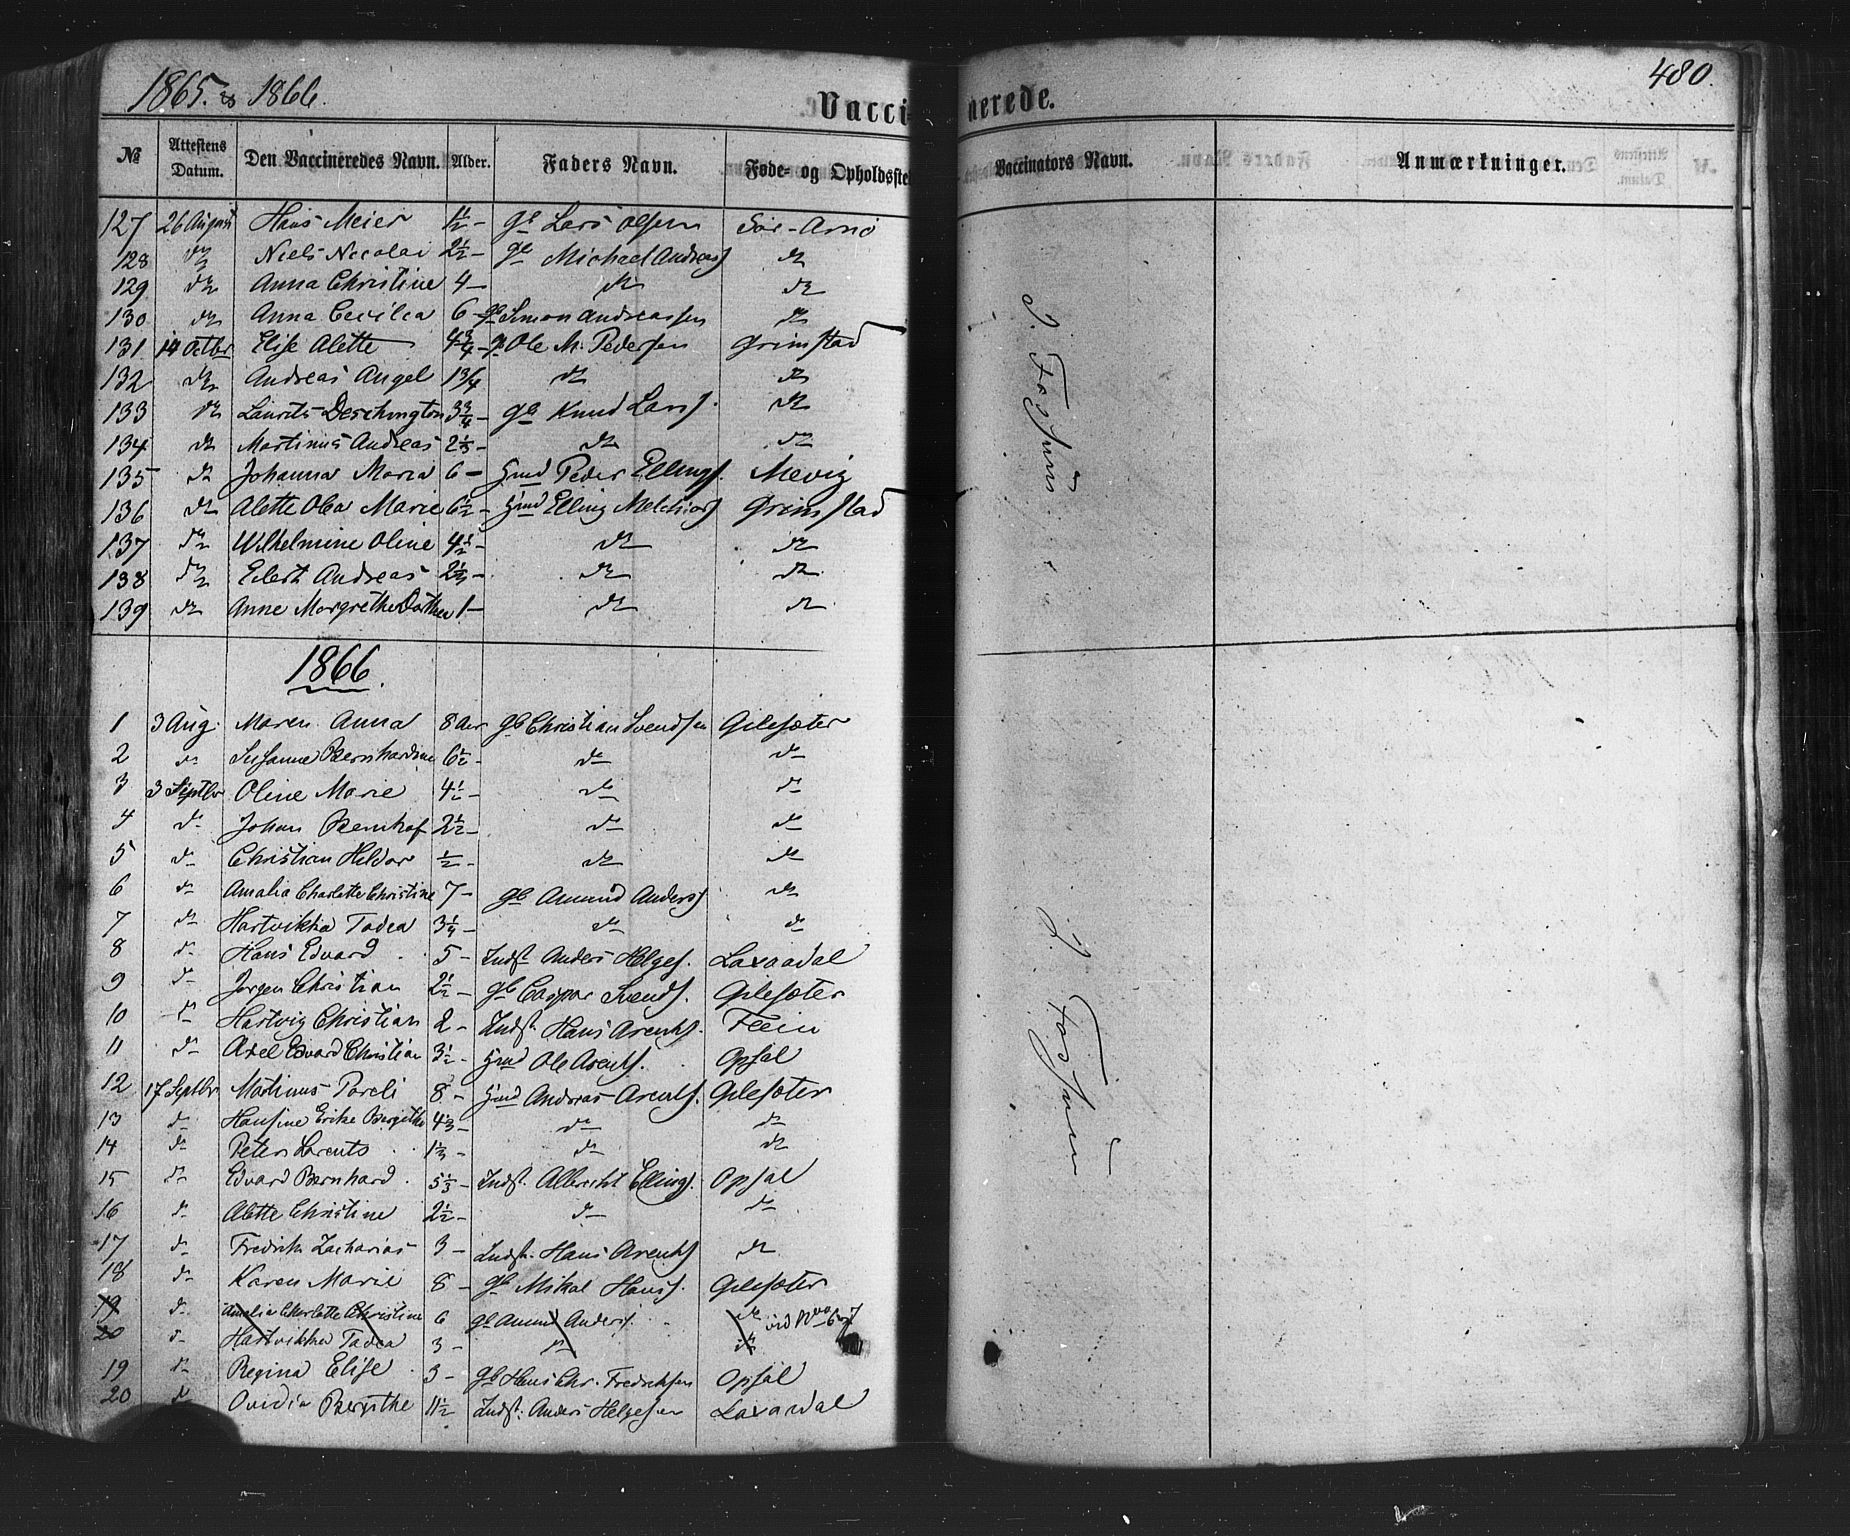 1865. & 1866.
Vaccinerede.
480.
№ Attestens Datum. Den Vaccineredes Navn. Alder. Faders Navn. Føde- og Opholdsste Vaccinators Navn. Anmærkninger.
127 26 August Hans Meier 1½ - gb Lars Olsen Sør-Arnø
128 do Niels Nicolai 2½ - gb Michael Andreas do
129 do Anna Christine 4 - do do
130 do Anna Cecilia 6 - gb Simon Andreassen do
131 14 Octbr Elise Alette 4¾ - gb Ole M. Pedersen Grimstad
132 do Andreas Angel do do
133 do Laurits Deschington 3¾ - gb Knud Lars. do
134 do Martinus Andreas 2⅓ - do do
135 do Johanna Maria 6 - Hmd Peder Ellings. Mevig
136 do Alette Olea Marie 6½ - Hmd Elling Melchiors Grimstad
137 do Wilhelmine Oline 4½ - do do
138 do Eilert Andreas 2½ - do do
139 do Anne Margrethe Dorthea 1 - do do
1866.
1 3 Aug. Maren Anna 8 Aar gb Christian Svendsen Gilesæter
2 do Susanne Bernhardine 6½ - do do
3 3 Septbr Oline Marie 4½ - do do
4 do Johan Bernhof 2½ - do do
5 do Christian Hildor ½ - do do
6 do Amalia Charlotte Christine 7 - gb Amund Anders do
7 do Hartvikka Tadea 3¼ - do do
8 do Hans Edvard 5 - Indst. Anders Helges. Laxaadal
9 do Jørgen Christian 2½ - gb Caspar Svends. Gilesæter
10 do Hartvig Christian 2 - Indst. Hans Arents. Flein
11 do Axel Edvard Christian 3½ - Hmd Ole Arents. Opsal
12 17 Septbr Martinus Pareli 8 - Hmd Andreas Arents. Gilesæter
13 do Hansine Erike Bergitha 4⅓ - do do
14 do Peter Lorents 1⅓ - do do
15 do Edvard Bernhard 5⅓ - Indst. Albrecht Ellings. Opsal
16 do Alette Christine 2½ - do do
17 do Fredrik Zacharias 3 - Indst. Hans Arents do
18 do Karen Marie 8 - gb Mikal Hans. Gilesæter
19 do Amalia Charlotte Christine 6 gb Amund Anders. do vid No 6 og 7
20 do Hartvikka Tadea 3 - do do
19 do Regina Elise 3 - gb Hans Chr. Fredriksen Opsal
20 do Ovidia Bergithe 11½ Indst. Anders Helgesen Laxaadal